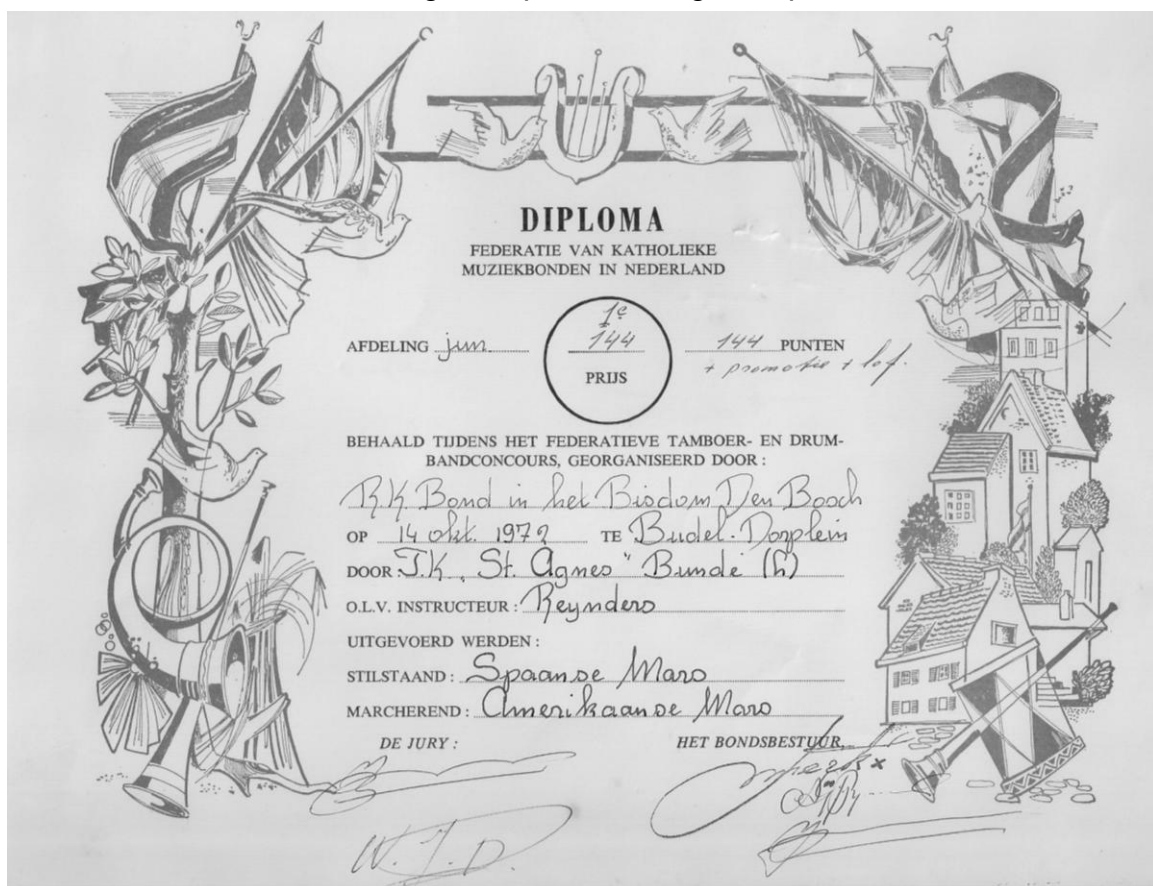 DIPLOMA
FEDERATIE VAN KATHOLIEKE
MUZIEKBONDEN IN NEDERLAND
1e
AFDELING jun. 144 144 PUNTEN
PRIJS + promotie + lof.
BEHAALD TIJDENS HET FEDERATIEVE TAMBOER- EN DRUM-
BANDCONCOURS, GEORGANISEERD DOOR :
R.K. Bond in het Bisdom Den Bosch
OP 14 okt. 1972 TE Budel-Dorplein
DOOR: T.K. „St. Agnes" Bunde (L)
O.L.V. INSTRUCTEUR : Reynders
UITGEVOERD WERDEN :
STILSTAAND : Spaanse Mars
MARCHEREND : Amerikaanse Mars
DE JURY : HET BONDSBESTUUR
W.J.D.